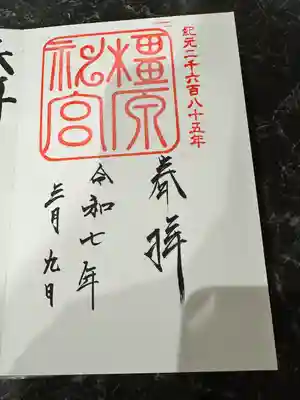 紀元二千六百八十五年
橿原
神宮
奉拝
令和七年
三月九日